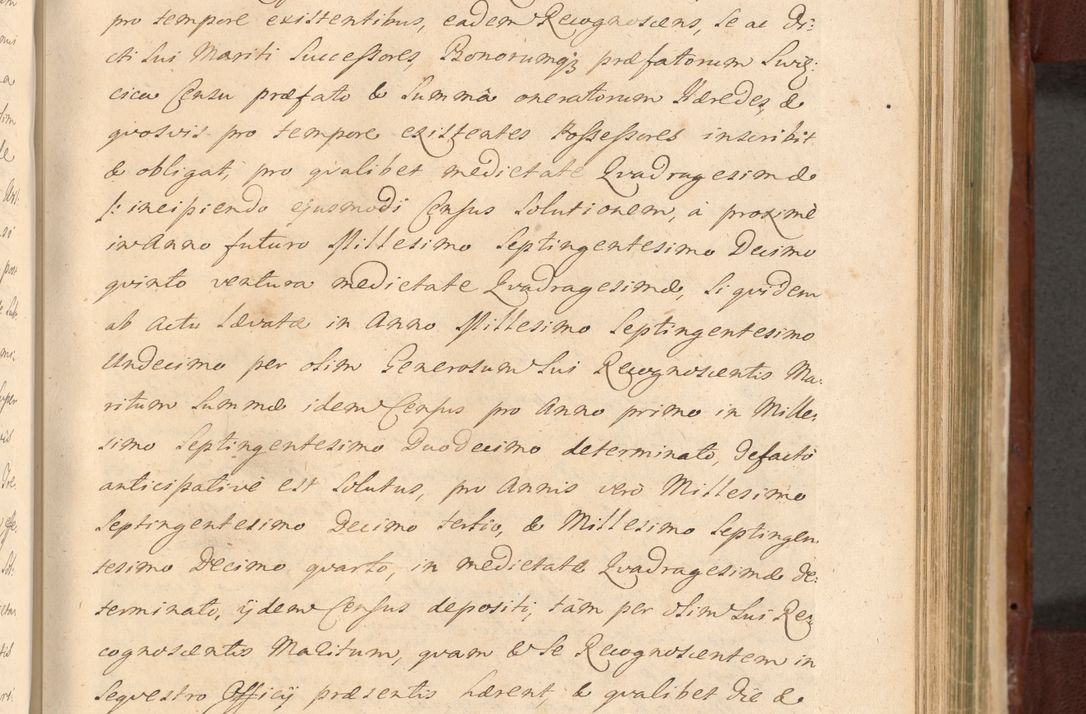 pro tempore existentibus, eadem Recognoscens, se ac Di:
cti sui Mariti Successores, Bonorumq3 præfatorum
cicu Censu præfato & Summâ oneratorum Hæredes, &
quosvis pro tempore existentes Possessores inscribit
& obligat, pro qualibet medietate Quadragesimæ
/: incipiendo ejusmodi Census solutionem, à proximè
in Anno futuro Millesimo Septingentesimo Decimo
quinto ventura medietate Quadragesimæ, siquidem
ab actu Lævatæ in Anno Millesimo Septingentesimo
Undecimo per olim Generosum sui Recognoscentis Ma:
ritum Summæ idem Census pro Anno primo in Mille:
simo Septingentesimo Duodecimo determinato, defacto
anticipativè est solutus, pro Annis verò Millesimo
Septingentesimo Decimo tertio, & Millesimo Septingen
tesimo Decimo quarto, in medietate Quadragesimæ de:
terminato, ijdem Census depositi, tàm per olim sui Re:
cognoscentis Maritum, quam & se Recognoscentem in
sequestro Officij præsentis hærent, & qualibet die &